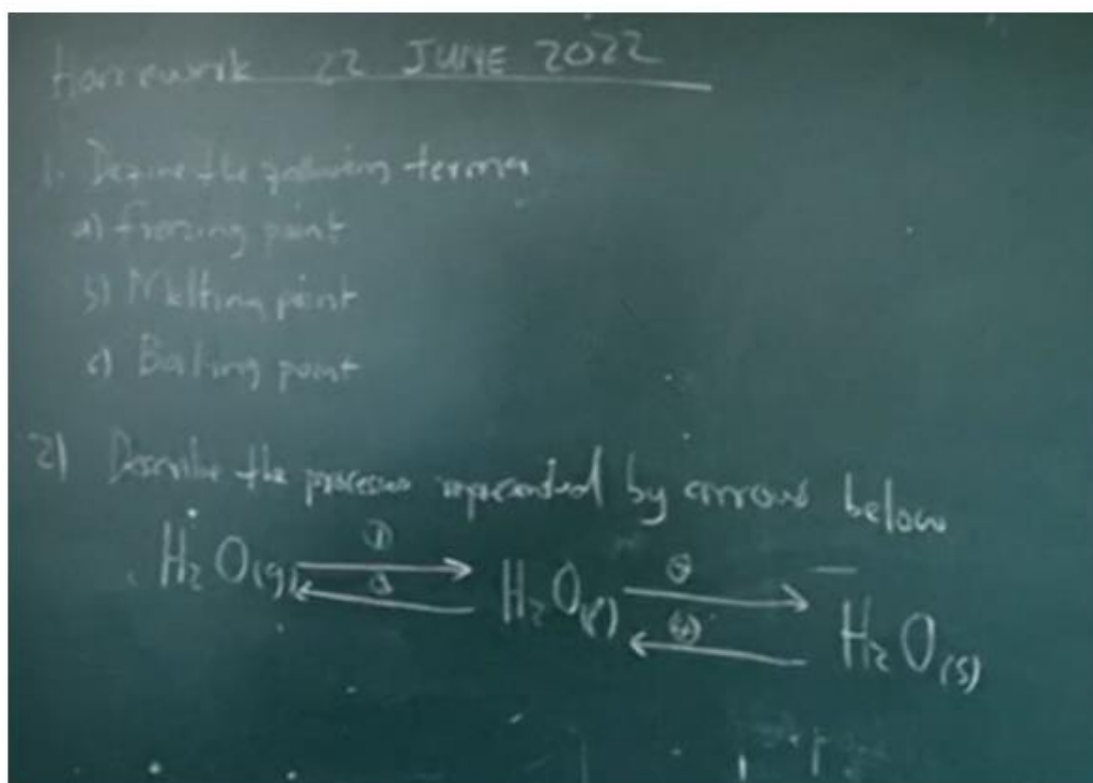 Homework 22 JUNE 2022
1. Define the following terms
a) freezing point
b) Melting point
c) Boiling point
2) Describe the processes represented by arrows below
①
H₂O(g) ⇄ H₂O(l) ⇄ H₂O(s)
④